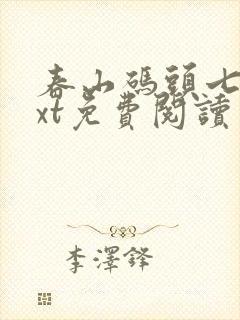 春山碼頭七
xt免費閱讀
李澤鋒